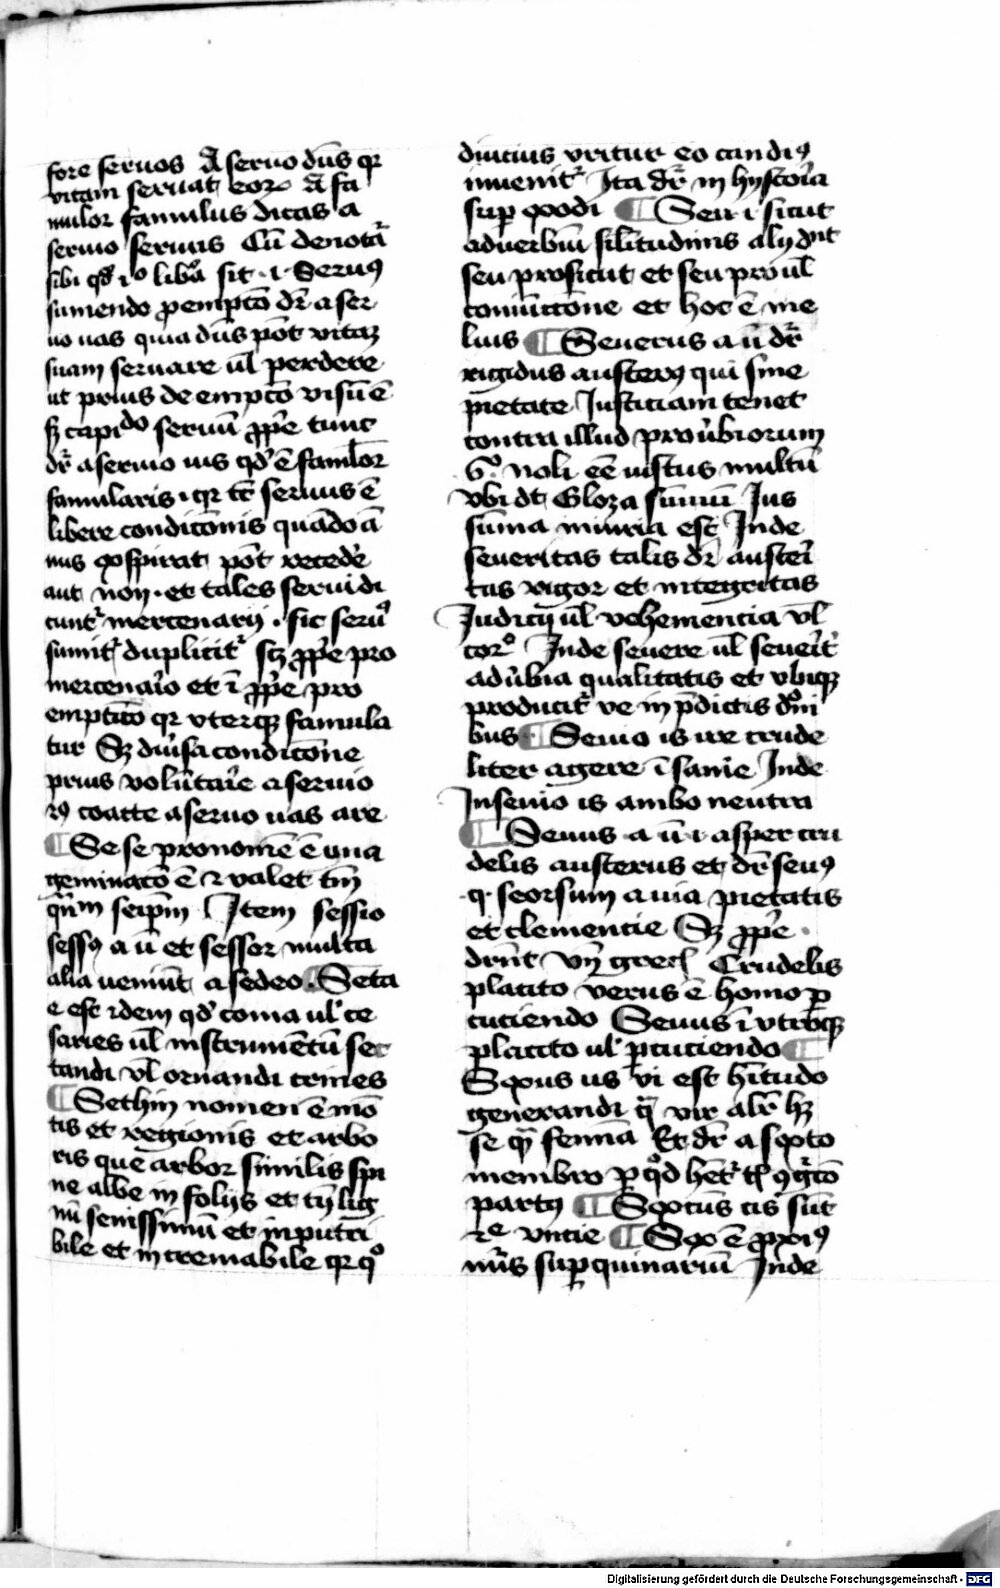 fore seruos A seruo dn̄s qr
vitam seruat eoꝝ A fa
mulor famulus dicas a
seruio seruus Cū denotat̄
sibi qd̕ iͦ libͣa sit ·i· Seruꝰ
sumendo p emptō dr̄ a ser
uo uas quia dn̄s pōt vitaꝫ
suam seruare ul̄ perdere
ut prius de emptō visū ē
sꝫ capiᵈᵒ seruū ꝓpe tunc
dr̄ a seruio uis qd̕ ē faml̄or
famularis · qr tc̄ seruus ē
libere condicōnis quādo ā
nus ꝯspirat pōt recedē
aut non · et tales serui di
cunt̄ mercenarij · sic seruꝰ
sumit̄ duplicit̄ scꝫ ꝓpe pro
mercenaīo et ī ꝓpe pro
empticō qr vterqꝫ famula
tur Sꝫ diu̕sa condicōne
prius volūtaīe a seruio
ꝛꝰ coacte a seruo uas are
¶ Se se pronomē ē una
geminacō ē ⁊ valet tm̄
qn̄ᵐ seip̄m Item sessio
sessꝰ a ū et sessor multa
alia ueniūt a sedeo · ¶ Seta
e est idem qd̕ coma ul̕ ce
saries ul̄ instrumētū sec
candi vl̄ ornandi crines
¶ Sethim nomen ē mō
tis et regionis et arbo
ris que arbor similis spi
ne albe in folijs et cuj lig
nū leuissimū et inputri
bile et incremabile qr qͦ
diucius vritur eo candiꝰ
inuenit̄ Ita dr̄ in hystoīa
sup̱ exodi ¶ Seu ·i· sicut
aduerbiū silitudinis alij dn̄t
seu proficiut et seu pro ul̄
coniūccōne et hoc ē me
lius ¶ Seuerus a ū dr̄
rigidus austerꝰ qui sine
pietate Iusticiam tenet
contra illud prou̕biorum
6ͦ noli eē iustus multū
vbi dt̄ Gloza sūmū Ius
sūma iniuria est Inde
seueritas talis dr̄ austeī
tas rigor et integritas
Iudicij ul̄ vehementia vl̄
torͦ Inde seuere ul̄ seueīt̄
adu̕bia qualitatis et vbiqꝫ
producit̄ ve in p̄dictis dōi
bus ¶ Seuio is ire crude
liter agere ī sanie Inde
Inseuio is ambo neutra
¶ Seuus a ū ·i· asper cru
delis austerus et dr̄ seuꝰ
·q· seorsum a uia pietatis
et clemencie Sꝫ ꝓpe ·
drn̄t Vn̄ grec̄ Crudelis
placito verus ē homo ꝑ
cuciendo Seuus ī vtroqꝫ
placito ul̕ ꝑcuciendo ¶
Sexus us vi est hītudo
generandi q̄ vir alr̄ hꝫ
se qͣ femīa Et dr̄ a sexto
membro p qͦd hēt̄ tl̄ ꝯgr̄cō
partꝰ ¶ Sextus cis sūt
ꝛᵉ vncie ¶ Sex ē ꝓxiꝰ
nūs sup̱ quinariū Inde
Digitalisierung gefördert durch die Deutsche Forschungsgemeinschaft - DFG